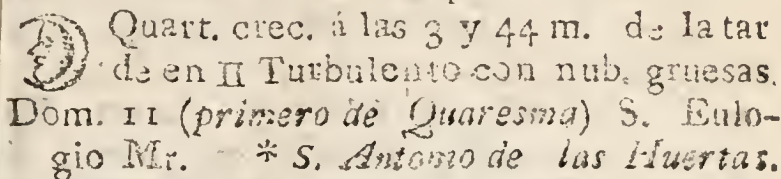 Quart. crec. á las 3 y 44 m. de la tar
de en ♊ Turbulento con nub. gruesas.
Dom. 11 (primero de Quaresma) S. Eulo-
gio Mr. * S. Antonio de las Huertas.